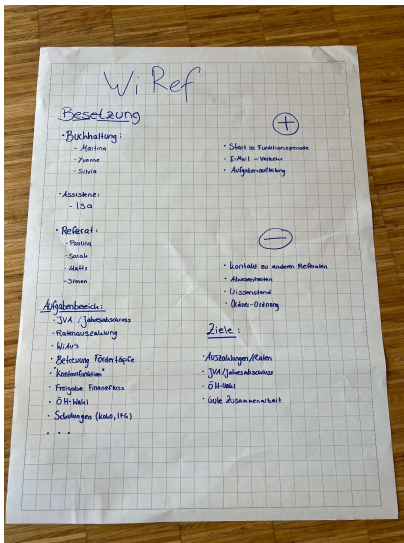 WiRef
Besetzung
• Buchhaltung:
- Martina
- Yvonne
- Silvia
• Assistenz:
- Isa
• Referat:
- Paulina
- Sarah
- Matts
- Simon
Aufgabenbereich:
• JVA / Jahresabschluss
• Ratenauszahlung
• WiAu's
• Betreuung Fördertöpfe
• "Kontrollfunktion"
• Freigabe Finanzfluss
• ÖH-Wahl
• Schulungen (KoKo, IFG)
• • •
+
• Start in Funktionsperiode
• E-Mail - Verkehr
• Aufgabenaufteilung
-
• Kontakt zu anderen Referaten
• Abwesenheiten
• Wissenstand
• Ordner-Ordnung
Ziele:
• Auszahlungen/Raten
• JVA/Jahresabschluss
• ÖH-Wahl
• Gute Zusammenarbeit